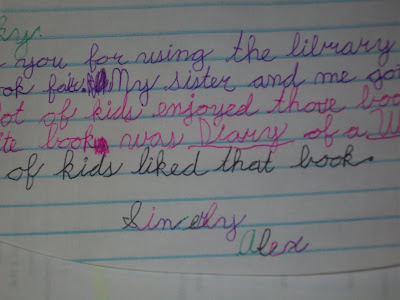 ky.
you for using the library
ook fair. My sister and me got
lot of kids enjoyed those boo
ite book was Diary of a W
of kids liked that book.
Sincely
Alex